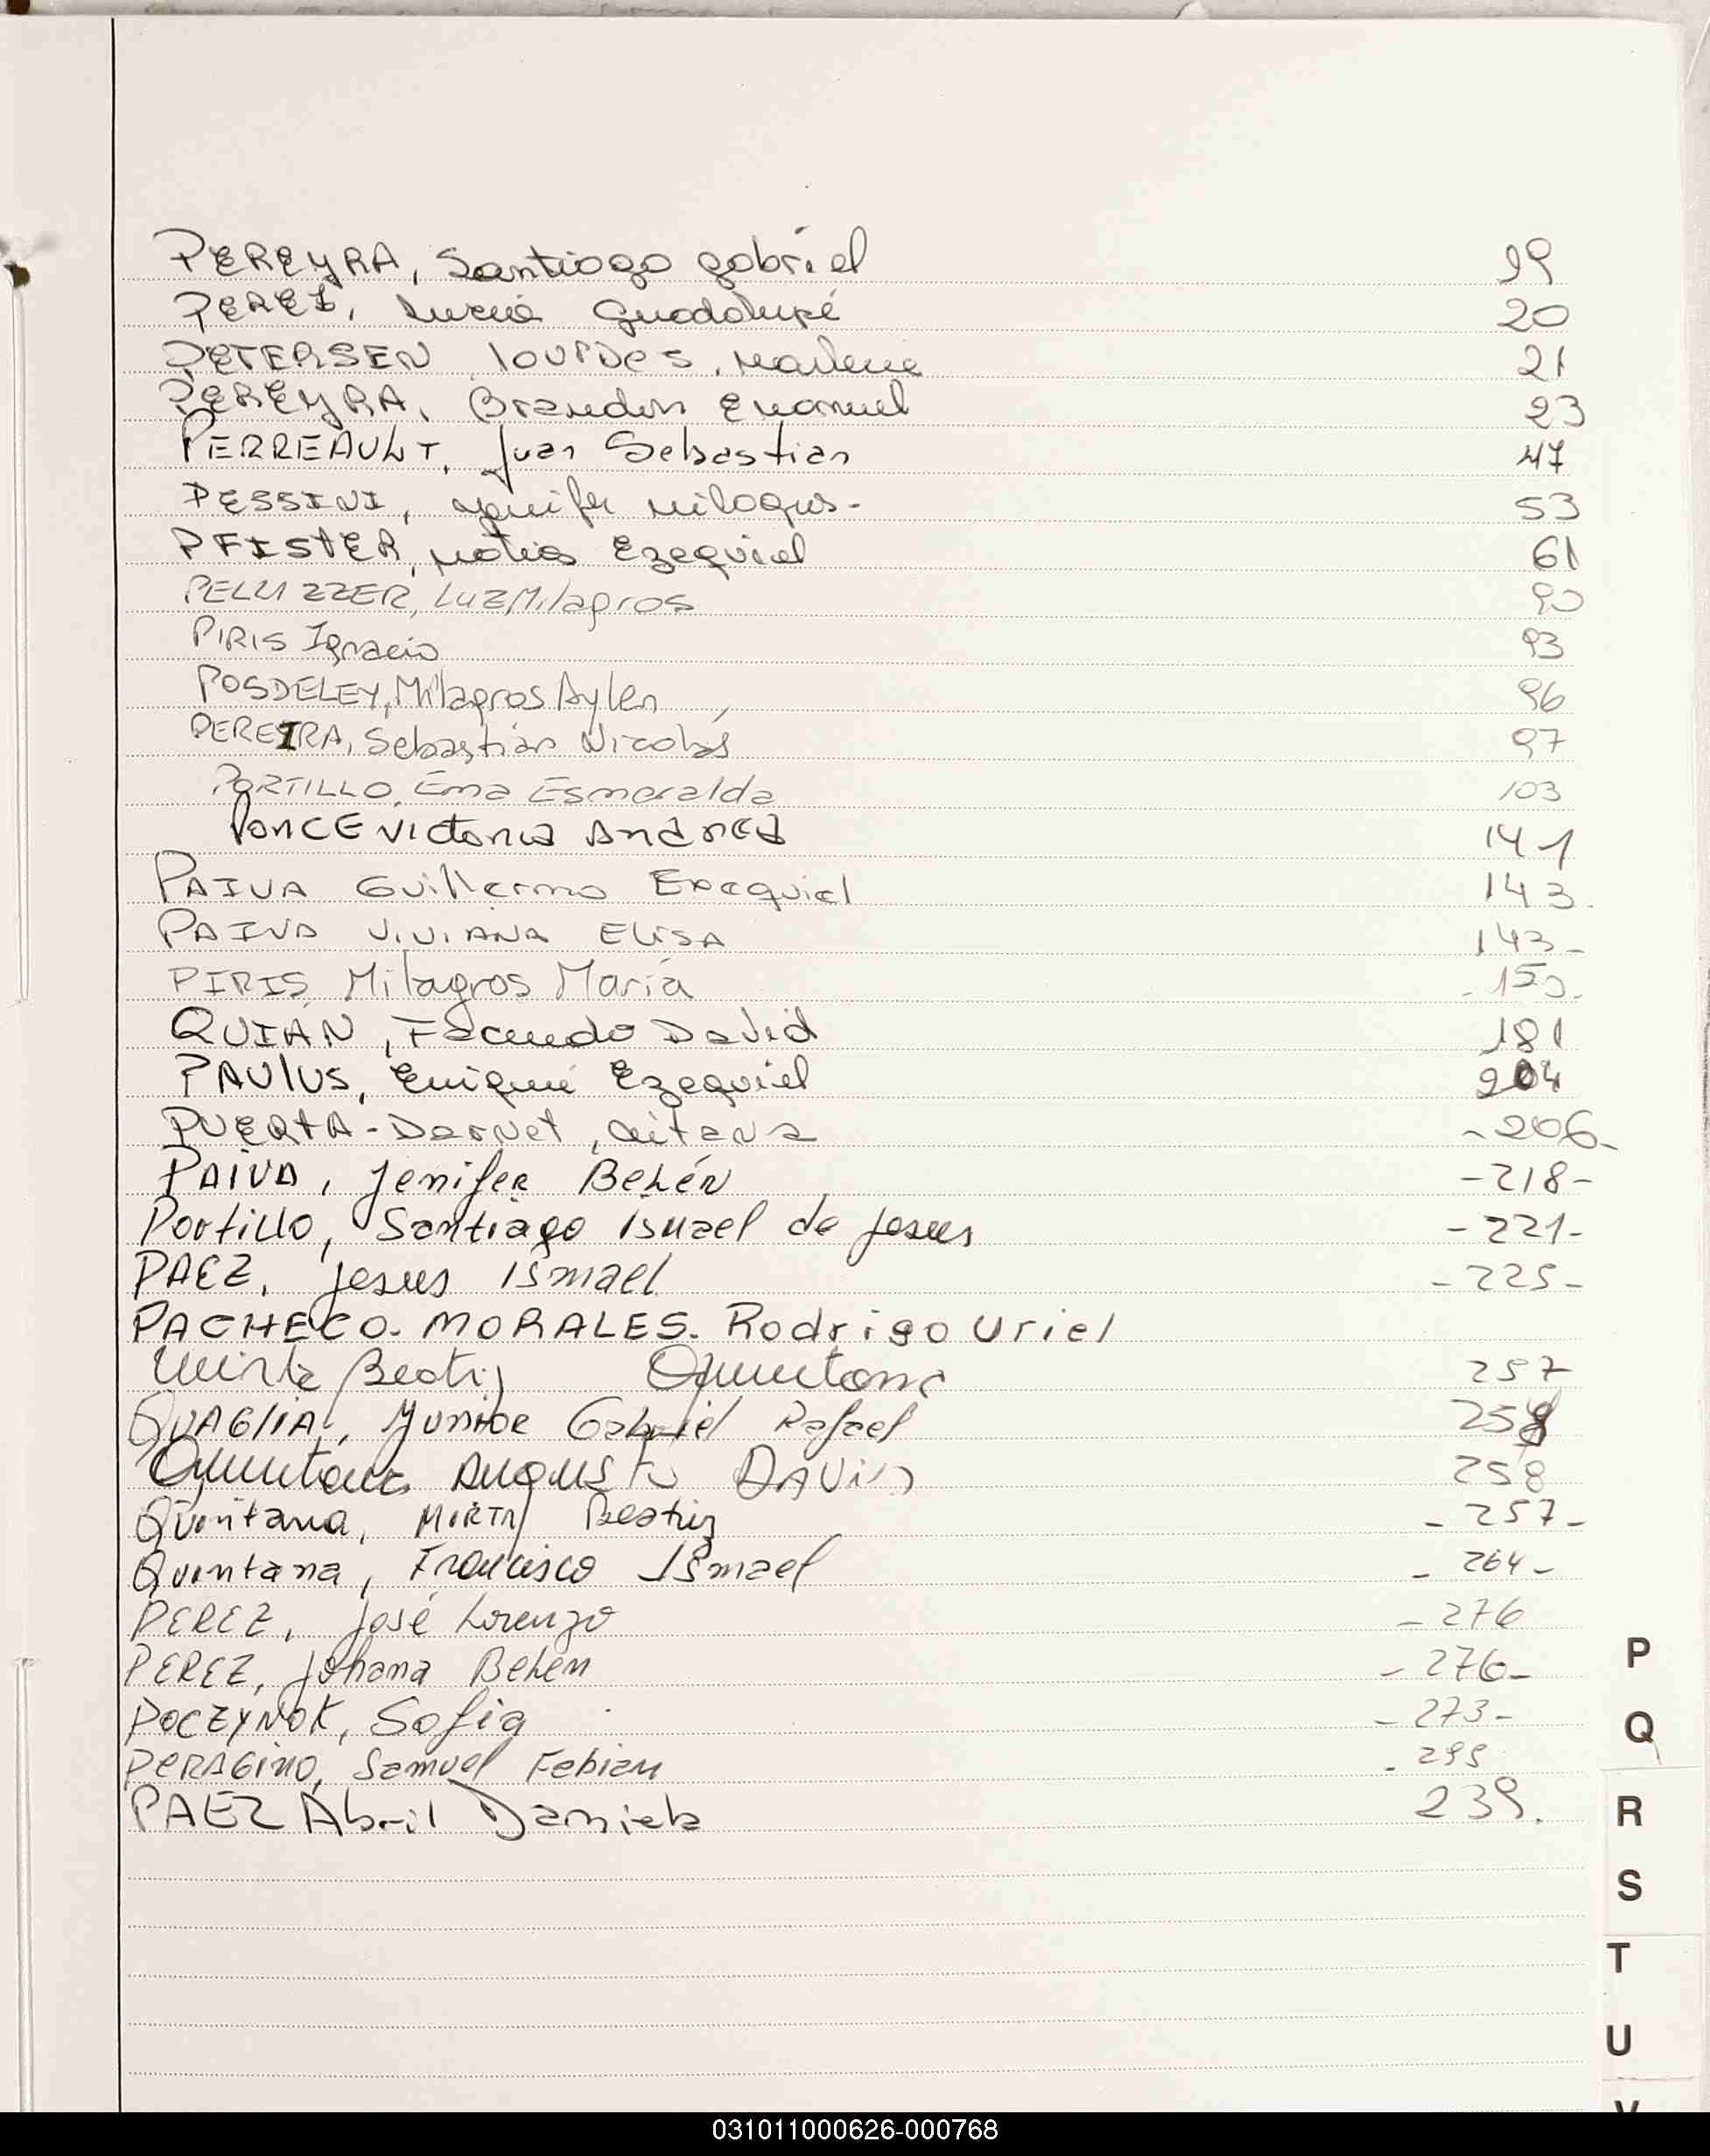 PEREYRA, Santiago gabriel 19
PEREZ, Lucía Guadalupe 20
PETERSEN, lOURDes, Marlene 21
PEREYRA, Brandon Emanuel 23
PERREAULT, Juan Sebastian 47
PESSINI, milagros - 53
PFISTER, Matias Ezequiel 61
PELLIZZER, Luz Milagros 90
PIRIS Ignacio 93
POSDELEY, Milagros Aylen 96
PEREIRA, Sebastián Nicolás 97
PORTILLO, Ema Esmeralda 103
PONCE Victoria Andrea 141
PAIVA Guillermo Exequiel 143.
PAIVA VIVIANA ELISA 143-
PIRIS, Milagros María - 150.
QUIAN, Facundo David 181
PAULUS, Enrique Ezequiel 204
PUERTA - Dornet, Aitana - 206-
PAIVA, Jenifer Belén - 218 -
Portillo, Santiago Ismael de Jesus - 221-
PAEZ, Jesus Ismael - 225 -
PACHECO. MORALES. Rodrigo Uriel
Mirta Beatriz Quintana 257
QUAGLIA, Junior Gabriel Rafael 258
Quintana AUGUSTO DAVID 258
Quintana, MIRTA Beatriz - 257 -
Quintana, Francisco Ismael - 264 -
PEREZ, José Lorenzo - 276
PEREZ, Johana Belén - 276-
POCZYNOK, Sofia - 273 -
PERAGINO, Samuel Fabian - 299
PAEZ Abril Daniela 239.
P
Q
R
S
T
U
V
031011000626-000768